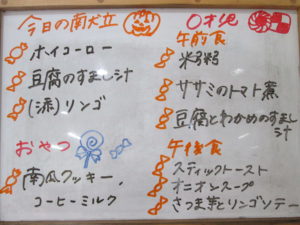 今日の献立
ホイコーロー
豆腐のすまし汁
(添)リンゴ
おやつ
南瓜クッキー.
コーヒーミルク
0才児
午前食
米粥
ササミのトマト煮
豆腐とわかめのすまし汁
午後食
スティックトースト
オニオンスープ
さつま芋とリンゴソテー